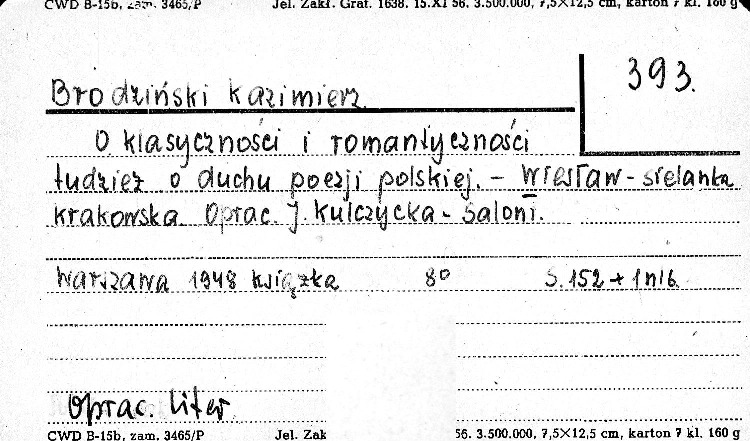 CWD B-15b, zam. 3465/P Jel. Zakł. Graf. 1638. 15.XI 56. 3.500.000, 7,5×12,5 cm, karton 7 kl. 160 g
393.
Brodziński Kazimierz
O klasyczności i romantyczności
tudzież o duchu poezji polskiej. - Wiesław - sielanka
krakowska. Oprac. J. Kulczycka - Saloni.
Warszawa 1948 Książka 8° S. 152 + 1 nlb.
Oprac. liter.
CWD B-15b, zam. 3465/P Jel. Zak 56. 3.500.000, 7,5×12,5 cm, karton 7 kl. 160 g